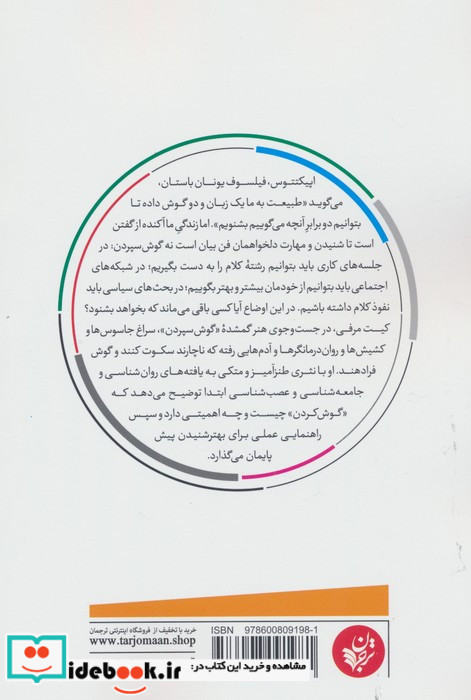 اپیکتتوس، فیلسوف یونان باستان،
می‌گوید «طبیعت به ما یک زبان و دو گوش داده تا
بتوانیم دو برابرِ آنچه می‌گوییم بشنویم». اما زندگیِ ما آکنده از گفتن
است تا شنیدن و مهارت دلخواهمان فن بیان است نه گوش‌سپردن: در
جلسه‌های کاری باید بتوانیم رشتهٔ کلام را به دست بگیریم؛ در شبکه‌های
اجتماعی باید بتوانیم از خودمان بیشتر و بهتر بگوییم؛ در بحث‌های سیاسی باید
نفوذ کلام داشته باشیم. در این اوضاع آیا کسی باقی می‌ماند که بخواهد بشنود؟
کیت مرفی، در جست‌وجوی هنر گمشدهٔ «گوش‌سپردن»، سراغ جاسوس‌ها و
کشیش‌ها و روان‌درمانگرها و آدم‌هایی رفته که ناچارند سکوت کنند و گوش
فرادهند. او با نثری طنزآمیز و متکی به یافته‌های روان‌شناسی و
جامعه‌شناسی و عصب‌شناسی ابتدا توضیح می‌دهد که
«گوش‌کردن» چیست و چه اهمیتی دارد و سپس
راهنمایی عملی برای بهترشنیدن پیش
پایمان می‌گذارد.
خرید با تخفیف از فروشگاه اینترنتی ترجمان
www.tarjomaan.shop
ISBN 978600809198-1
ترجمان
مشاهده و خرید این کتاب در:
idebook.ir